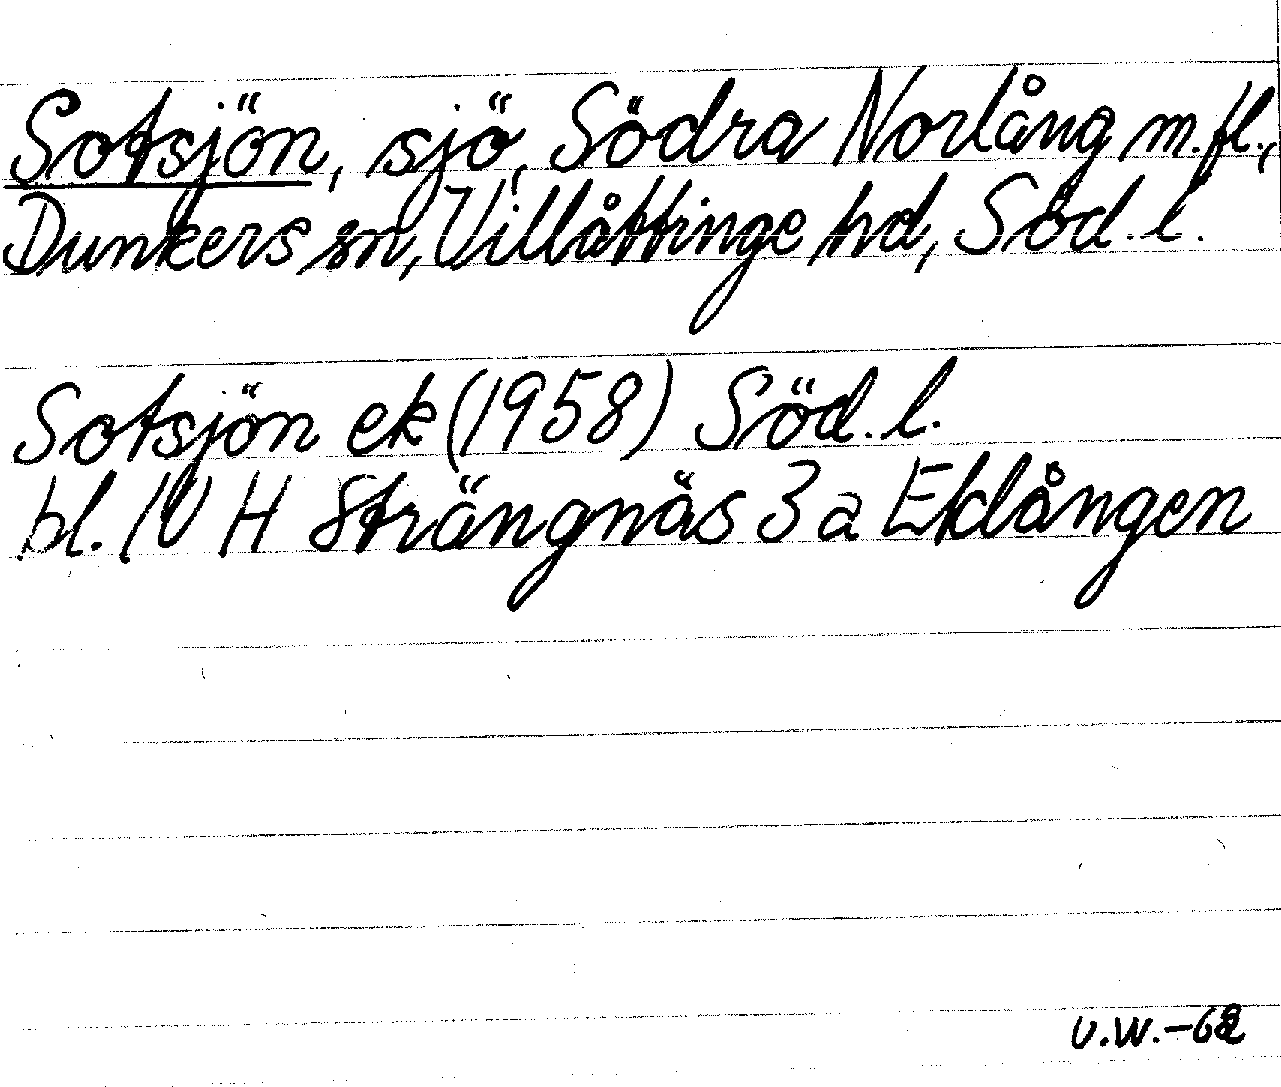 Sotsjön, sjö, Södra Norlång m.fl.,
Dunkers sn, Villåttinge hd, Söd. l.
Sotsjön ek (1958) Söd. l.
bl. IV H Strängnäs 3 a Eklången
U.W.-62